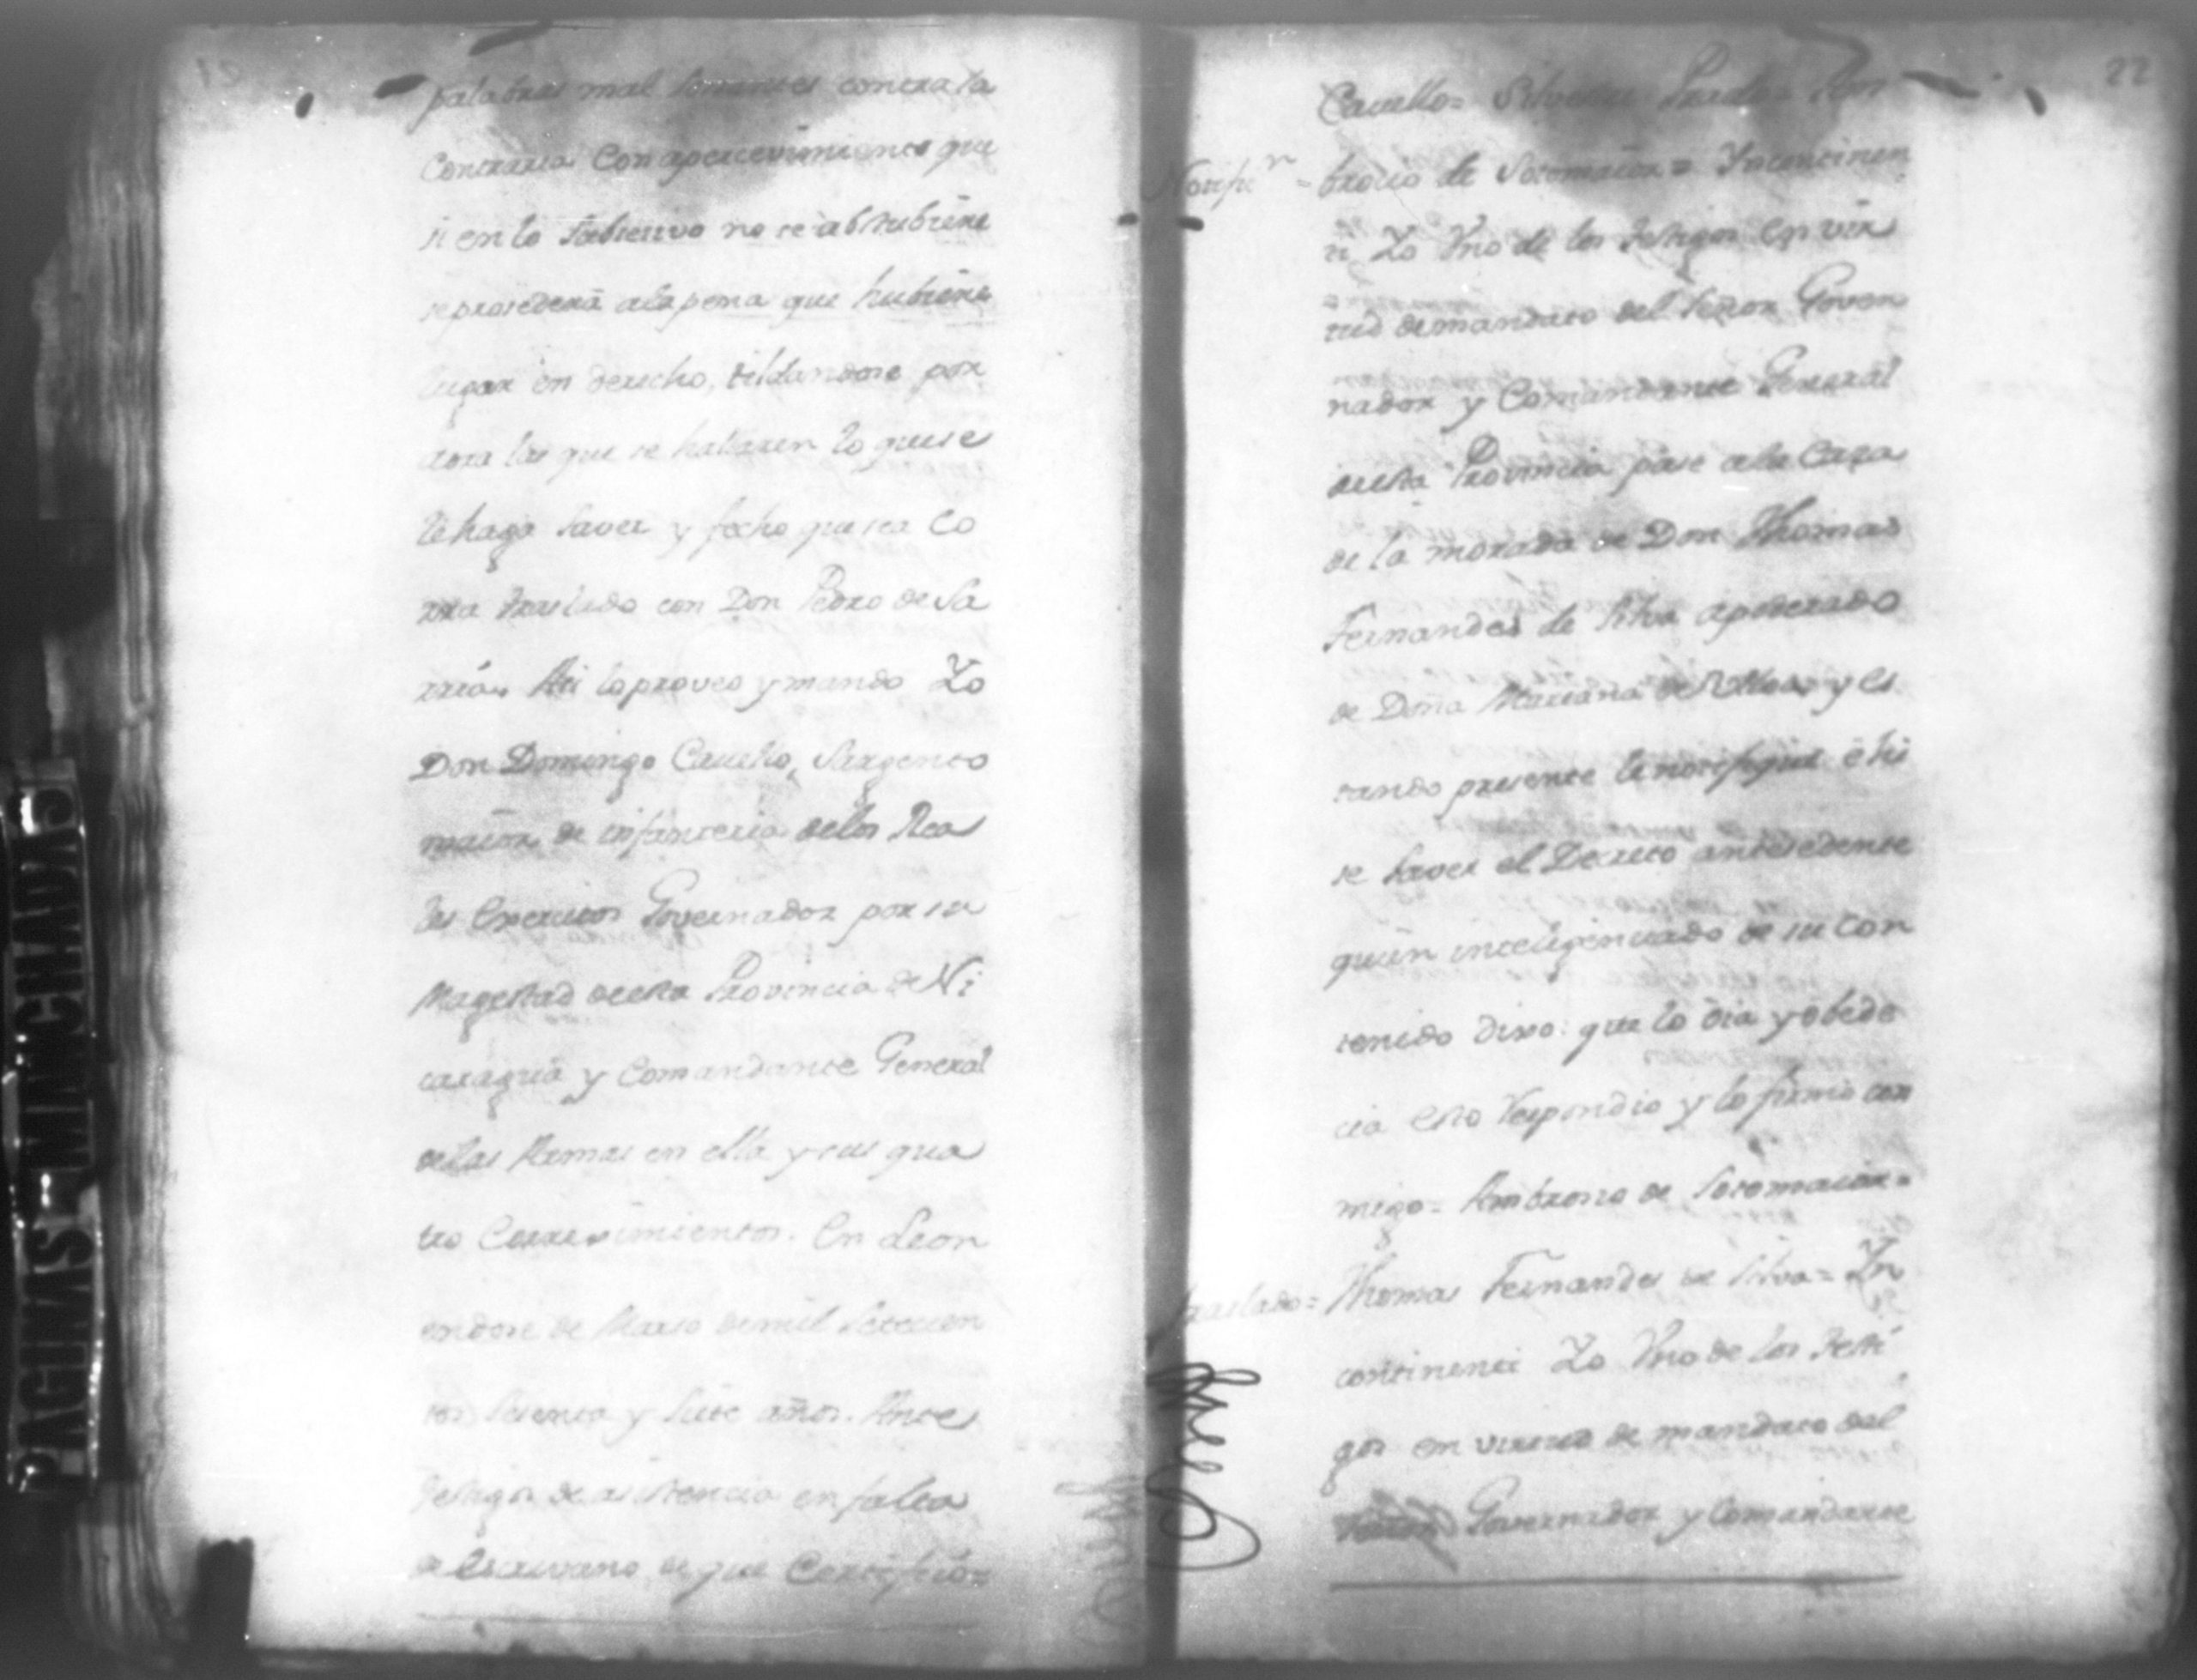 palabras mal sonantes contra la
Contraria Con apercevimiento que
si en lo subsesivo no se abstubiere
se prosederá a la pena que hubiere
lugar en derecho, tildandose por
aora las que se hallaren lo que se
le haga saver y fecho que sea Co
rra traslado con Don Pedro de Sa
rria. Asi lo proveo y mando Yo
Don Domingo Cavello, Sargento
maior de infanteria de los Rea
les Exercitos Governador por su
Magestad de esta Provincia de Ni
caragua y Comandante General
de las Armas en ella y sus qua
tro Corregimientos. En Leon
en dose de Marzo de mil setecien
tos sesenta y siete años. Ante
testigos de asistencia en falta
de Escrivano de que Certifico=
22
Cavello= Silvestre Prado= Am
Notifn= brocio de Sotomaior= Yncontinen
ti Yo Uno de los testigos en vir
tud de mandato del Señor Gover
nador y Comandante General
de esta Provincia pasé a la Casa
de la morada de Don Thomas
Fernandes de Silva apoderado
de Doña Mariana de y es
tando presente le notifiqué é hi
se saver el Decreto antesedente
quien inteligenciado de su Con
tenido dixo: que lo oia y obede
cia esto respondio y lo firmó con
migo= Ambrocio de Sotomaior=
traslado= Thomas Fernandes de Silva= Yn
continenti Yo Uno de los testi
gos em virtud de mandato del
Señor Governador y Comandante
PAGINAS MANCHADAS